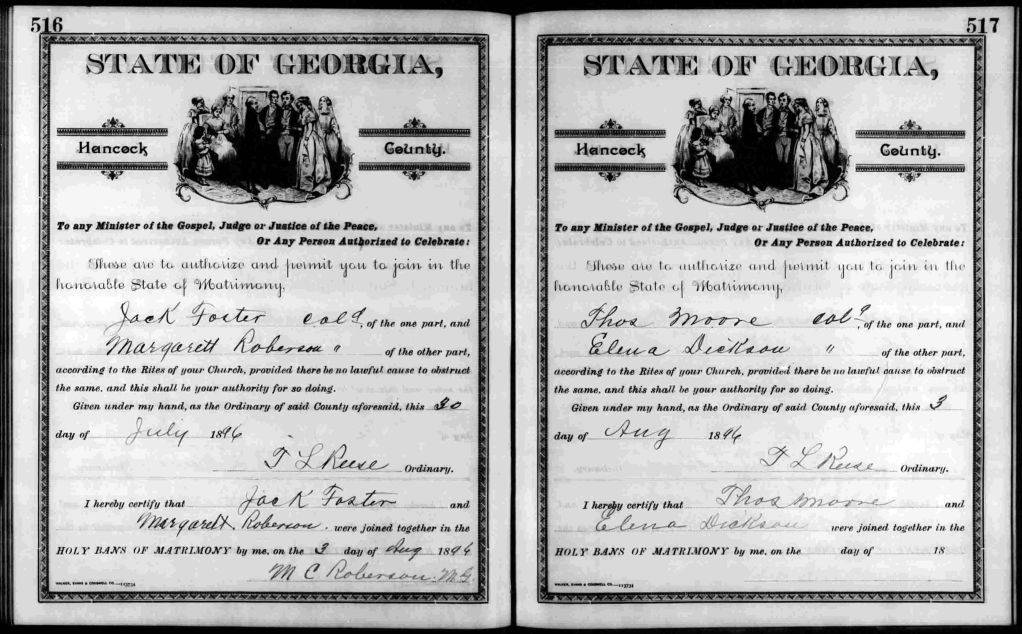 516
STATE OF GEORGIA,
Hancock County.
To any Minister of the Gospel, Judge or Justice of the Peace,
Or Any Person Authorized to Celebrate:
These are to authorize and permit you to join in the
honorable State of Matrimony,
Jack Foster cold, of the one part, and
Margarett Roberson " of the other part,
according to the Rites of your Church, provided there be no lawful cause to obstruct
the same, and this shall be your authority for so doing.
Given under my hand, as the Ordinary of said County aforesaid, this 30
day of July 1896
T L Reese Ordinary.
I hereby certify that Jack Foster and
Margarett Roberson were joined together in the
HOLY BANS OF MATRIMONY by me, on the 3 day of Aug 1896
M C Roberson. M.G
WALKER, EVANS & COGSWELL CO.—113734
517
STATE OF GEORGIA,
Hancock County.
To any Minister of the Gospel, Judge or Justice of the Peace,
Or Any Person Authorized to Celebrate:
These are to authorize and permit you to join in the
honorable State of Matrimony,
Thos Moore cold, of the one part, and
Elena Dickson " of the other part,
according to the Rites of your Church, provided there be no lawful cause to obstruct
the same, and this shall be your authority for so doing.
Given under my hand, as the Ordinary of said County aforesaid, this 3
day of Aug 1896
T L Reese Ordinary.
I hereby certify that Thos Moore and
Elena Dickson were joined together in the
HOLY BANS OF MATRIMONY by me, on the day of 18
WALKER, EVANS & COGSWELL CO.—113734